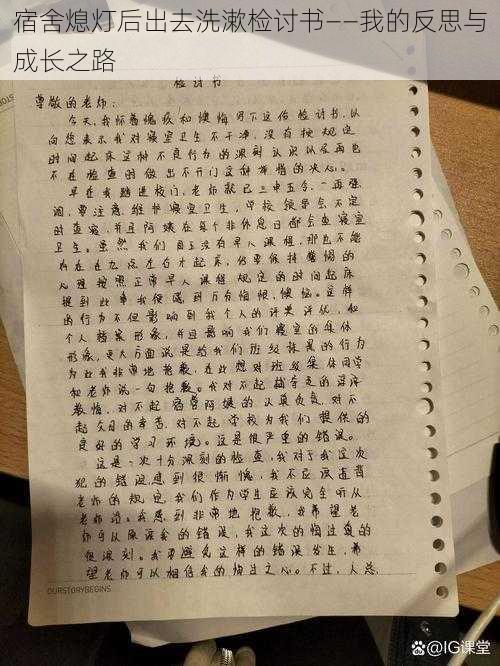 宿舍熄灯后出去洗漱检讨书——我的反思与
成长之路
检讨书
尊敬的老师：
今天,我怀着愧疚和懊悔写下这份检讨书,以
向您表示我对寝室卫生不干净,没有按规定
时间起床这种不良行为的深刻认识以及再也
不在检查时做出不开门这种 的决心。
早在我踏进校门,老师就已三申五令,一再强
调,要注意维护寝室卫生,学校领导会不定
时查寝,并且阿姨在每个非休息日都会查寝室
卫生。虽然我们周五没有早八课程,那也不能
在九点左右才起床,仍要保持警惕的
心理按照正常早八课程规定的时间起床
提到此事我便感到万分愧恨,懊恼。这样
的行为不但影响到我个人的评奖评优,和
个人档案形象,并且影响我们寝室的集体
形象,更大方面说是给我们班级抹黑的行为
为此我非常地抱歉,在此想对班级集体同学
和老师说一句抱歉。我对不起 的谆谆
教诲,对不起宿管阿姨的认真负责,对不
起父母的辛苦,对不起学校为我们提供的
良好的学习环境。这是很严重的错误。
这是一次十分深刻的检查,我对于我这次
犯的错误感到很惭愧,我不应该违背
老师的规定,我们作为学生应该完全听从
老师的话。我感到非常地抱歉,我希望老
师可以原谅我的错误,我这次的悔过真的
很深刻。我要避免这样的错误发生,希
望老师可以相信我的悔过之心。不过,人总
OURSTORYBEGINS
@IG课堂